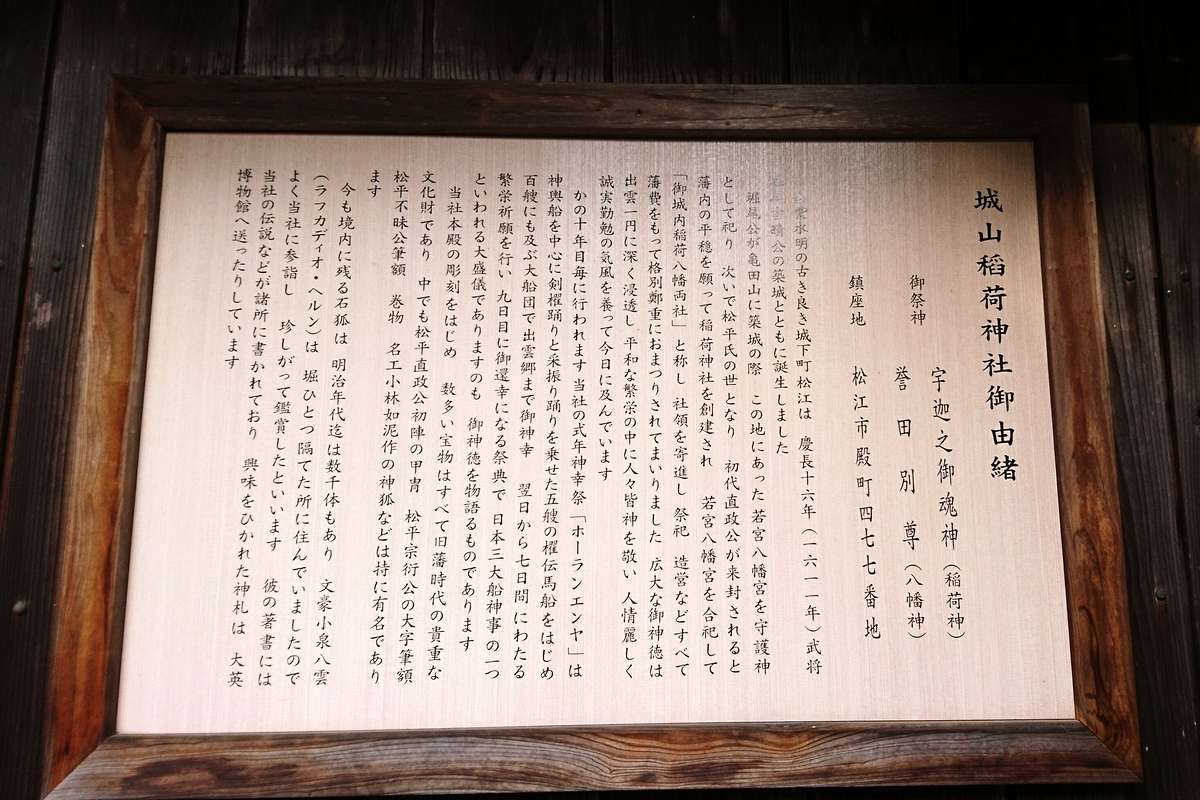 城山稲荷神社御由緒
御祭神　宇迦之御魂神（稲荷神）
誉田別尊（八幡神）
鎮座地　松江市殿町四七七番地
紫水明の古き良き城下町松江は　慶長十六年（一六一一年）武将
公の築城とともに誕生しました
堀尾公が亀田山に築城の際　この地にあった若宮八幡宮を守護神
として祀り　次いで松平氏の世となり　初代直政公が来封されると
藩内の平穏を願って稲荷神社を創建され　若宮八幡宮を合祀して
「御城内稲荷八幡両社」と称し　社領を寄進し　祭祀　造営などすべて
藩費をもって格別鄭重におまつりされてまいりました　広大な御神徳は
出雲一円に深く浸透し　平和な繁栄の中に人々皆神を敬い　人情麗しく
誠実勤勉の気風を養って今日に及んでいます
かの十年目毎に行われます　当社の式年神幸祭「ホーランエンヤ」は
神輿船を中心に剣櫂踊りと采振り踊りを乗せた五艘の櫂伝馬船をはじめ
百艘にも及ぶ大船団で出雲郷まで御神幸　翌日から七日間にわたる
繁栄祈願を行い　九日目に御還幸になる祭典で　日本三大船神事の一つ
といわれる大盛儀でありますのも　御神徳を物語るものであります
当社本殿の彫刻をはじめ　数多い宝物はすべて旧藩時代の貴重な
文化財であり　中でも松平直政公初陣の甲冑　松平宗衍公の大字筆額
松平不昧公筆額　巻物　名工小林如泥作の神狐などは持に有名であり
ます
今も境内に残る石狐は　明治年代迄は数千体もあり　文豪小泉八雲
（ラフカディオ・ヘルン）は　堀ひとつ隔てた所に住んでいましたので
よく当社に参詣し　珍しがって鑑賞したといいます　彼の著書には
当社の伝説などが諸所に書かれており　興味をひかれた神札は　大英
博物館へ送ったりしています